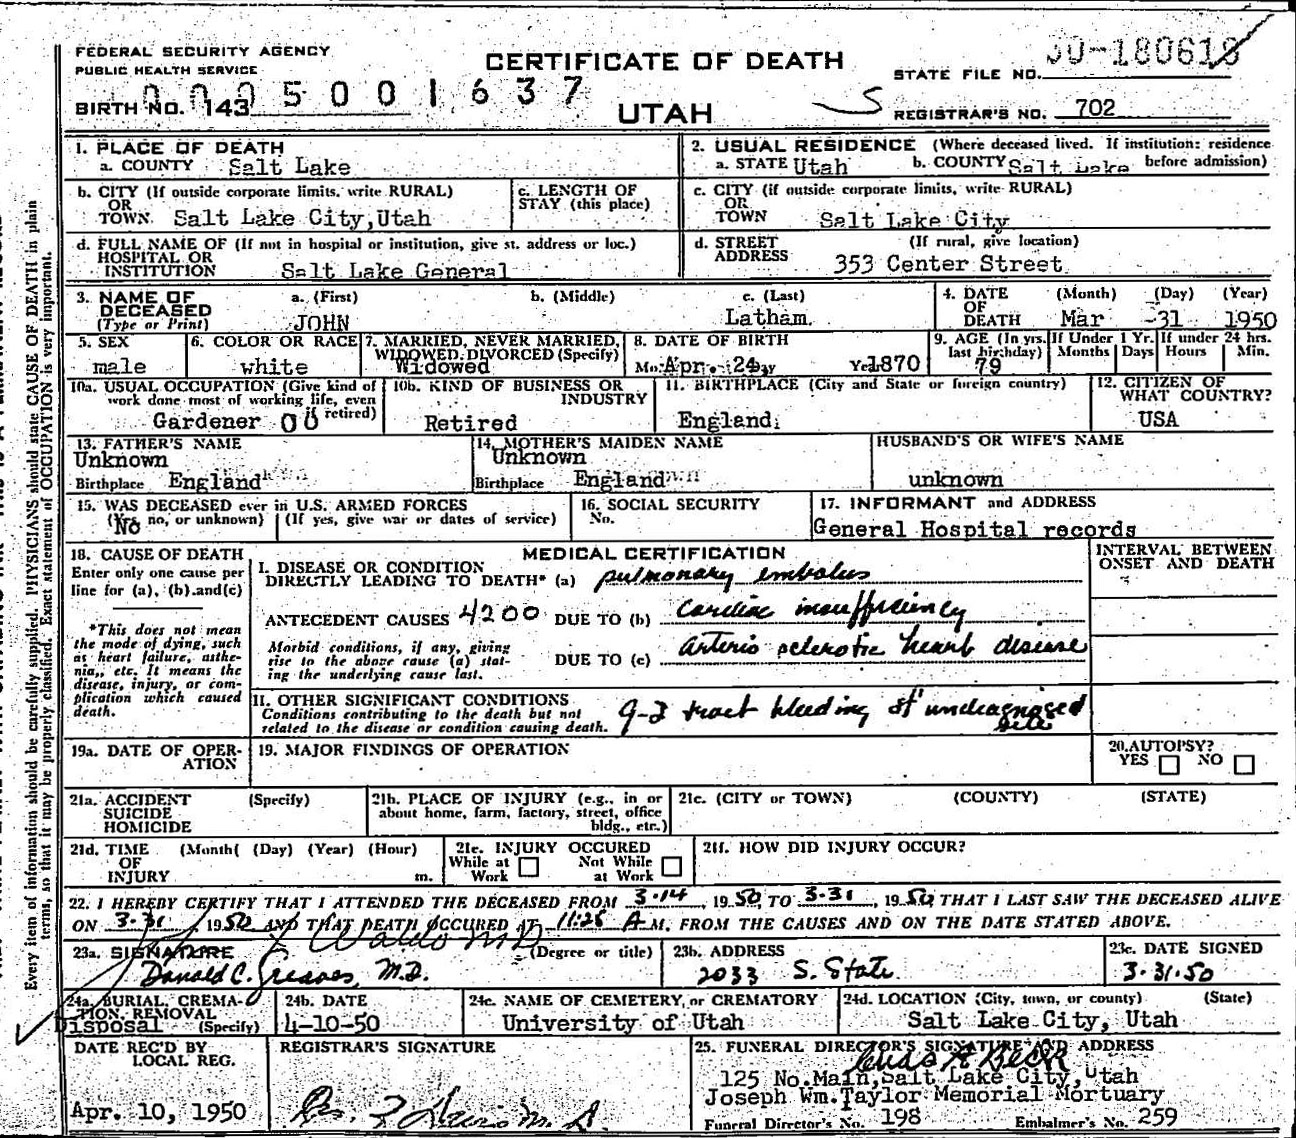 FEDERAL SECURITY AGENCY
PUBLIC HEALTH SERVICE
BIRTH NO. 143
0005001637
CERTIFICATE OF DEATH
UTAH
STATE FILE NO.
REGISTRAR'S NO. 702
1. PLACE OF DEATH
a. COUNTY Salt Lake
2. USUAL RESIDENCE (Where deceased lived. If institution: residence
a. STATE Utah b. COUNTY Salt Lake before admission)
b. CITY (If outside corporate limits, write RURAL)
OR
TOWN. Salt Lake City, Utah
c. LENGTH OF
STAY (this place)
c. CITY (if outside corporate limits, write RURAL)
OR
TOWN Salt Lake City
d. FULL NAME OF (If not in hospital or institution, give st. address or loc.)
HOSPITAL OR
INSTITUTION Salt Lake General
d. STREET (If rural, give location)
ADDRESS 353 Center Street
3. NAME OF a. (First) b. (Middle) c. (Last)
DECEASED
(Type or Print) JOHN Latham
4. DATE (Month) (Day) (Year)
OF
DEATH Mar -31 1950
5. SEX
male
6. COLOR OR RACE
white
7. MARRIED, NEVER MARRIED,
WIDOWED, DIVORCED (Specify)
Widowed
8. DATE OF BIRTH
Mo. Apr. 24 1870
9. AGE (In yrs. last birthday) If Under 1 Yr. If under 24 hrs.
Months Days Hours Min.
79
10a. USUAL OCCUPATION (Give kind of
work done most of working life, even
if retired)
Gardener 00
10b. KIND OF BUSINESS OR
INDUSTRY
Retired
11. BIRTHPLACE (City and State or foreign country)
England
12. CITIZEN OF
WHAT COUNTRY?
USA
13. FATHER'S NAME
Unknown
Birthplace England
14. MOTHER'S MAIDEN NAME
Unknown
Birthplace England
HUSBAND'S OR WIFE'S NAME
unknown
15. WAS DECEASED ever in U.S. ARMED FORCES
No no, or unknown) (If yes, give war or dates of service)
16. SOCIAL SECURITY
No.
17. INFORMANT and ADDRESS
General Hospital records
18. CAUSE OF DEATH
Enter only one cause per
line for (a), (b) and (c)
*This does not mean
the mode of dying, such
as heart failure, asthe-
nia, etc. It means the
disease, injury, or com-
plication which caused
death.
MEDICAL CERTIFICATION
I. DISEASE OR CONDITION
DIRECTLY LEADING TO DEATH* (a) pulmonary embolus
ANTECEDENT CAUSES 4200 DUE TO (b) Cardiac insufficiency
Morbid conditions, if any, giving
rise to the above cause (a) stat-
ing the underlying cause last.
DUE TO (c) arterio sclerotic heart disease
II. OTHER SIGNIFICANT CONDITIONS
Conditions contributing to the death but not
related to the disease or condition causing death.
G-I tract bleeding of undiagnosed
site
INTERVAL BETWEEN
ONSET AND DEATH
19a. DATE OF OPER-
ATION
19. MAJOR FINDINGS OF OPERATION
20. AUTOPSY?
YES NO
21a. ACCIDENT (Specify)
SUICIDE
HOMICIDE
21b. PLACE OF INJURY (e.g., in or
about home, farm, factory, street, office
bldg., etc.)
21c. (CITY or TOWN) (COUNTY) (STATE)
21d. TIME (Month( (Day) (Year) (Hour)
OF
INJURY m.
21e. INJURY OCCURED
While at Work Not While at Work
21f. HOW DID INJURY OCCUR?
22. I HEREBY CERTIFY THAT I ATTENDED THE DECEASED FROM 3-14, 1950, TO 3-31, 1950, THAT I LAST SAW THE DECEASED ALIVE
ON 3-31 1950 AND THAT DEATH OCCURED AT 11:25 A M. FROM THE CAUSES AND ON THE DATE STATED ABOVE.
Waldo MD
23a. SIGNATURE (Degree or title)
Donald C. Greaves, M.D.
23b. ADDRESS
2033 S. State
23c. DATE SIGNED
3-31-50
24a. BURIAL, CREMA-
TION, REMOVAL
Disposal (Specify)
24b. DATE
4-10-50
24c. NAME OF CEMETERY, or CREMATORY
University of Utah
24d. LOCATION (City, town, or county) (State)
Salt Lake City, Utah
DATE REC'D BY
LOCAL REG.
Apr. 10, 1950
REGISTRAR'S SIGNATURE
25. FUNERAL DIRECTOR'S SIGNATURE AND ADDRESS
125 No. Main, Salt Lake City, Utah
Joseph Wm. Taylor Memorial Mortuary
Funeral Director's No. 198 Embalmer's No. 259
Every item of information should be carefully supplied. PHYSICIANS should state CAUSE OF DEATH in plain
terms, so that it may be properly classified. Exact statement of OCCUPATION is very important.